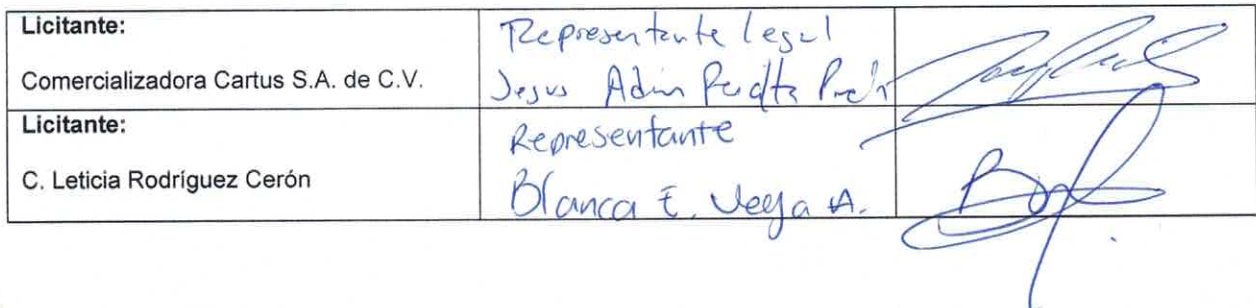 Licitante:
Comercializadora Cartus S.A. de C.V.
Representante legal
Jesus Peralta
Licitante:
C. Leticia Rodríguez Cerón
Representante
Blanca E. Vega A.